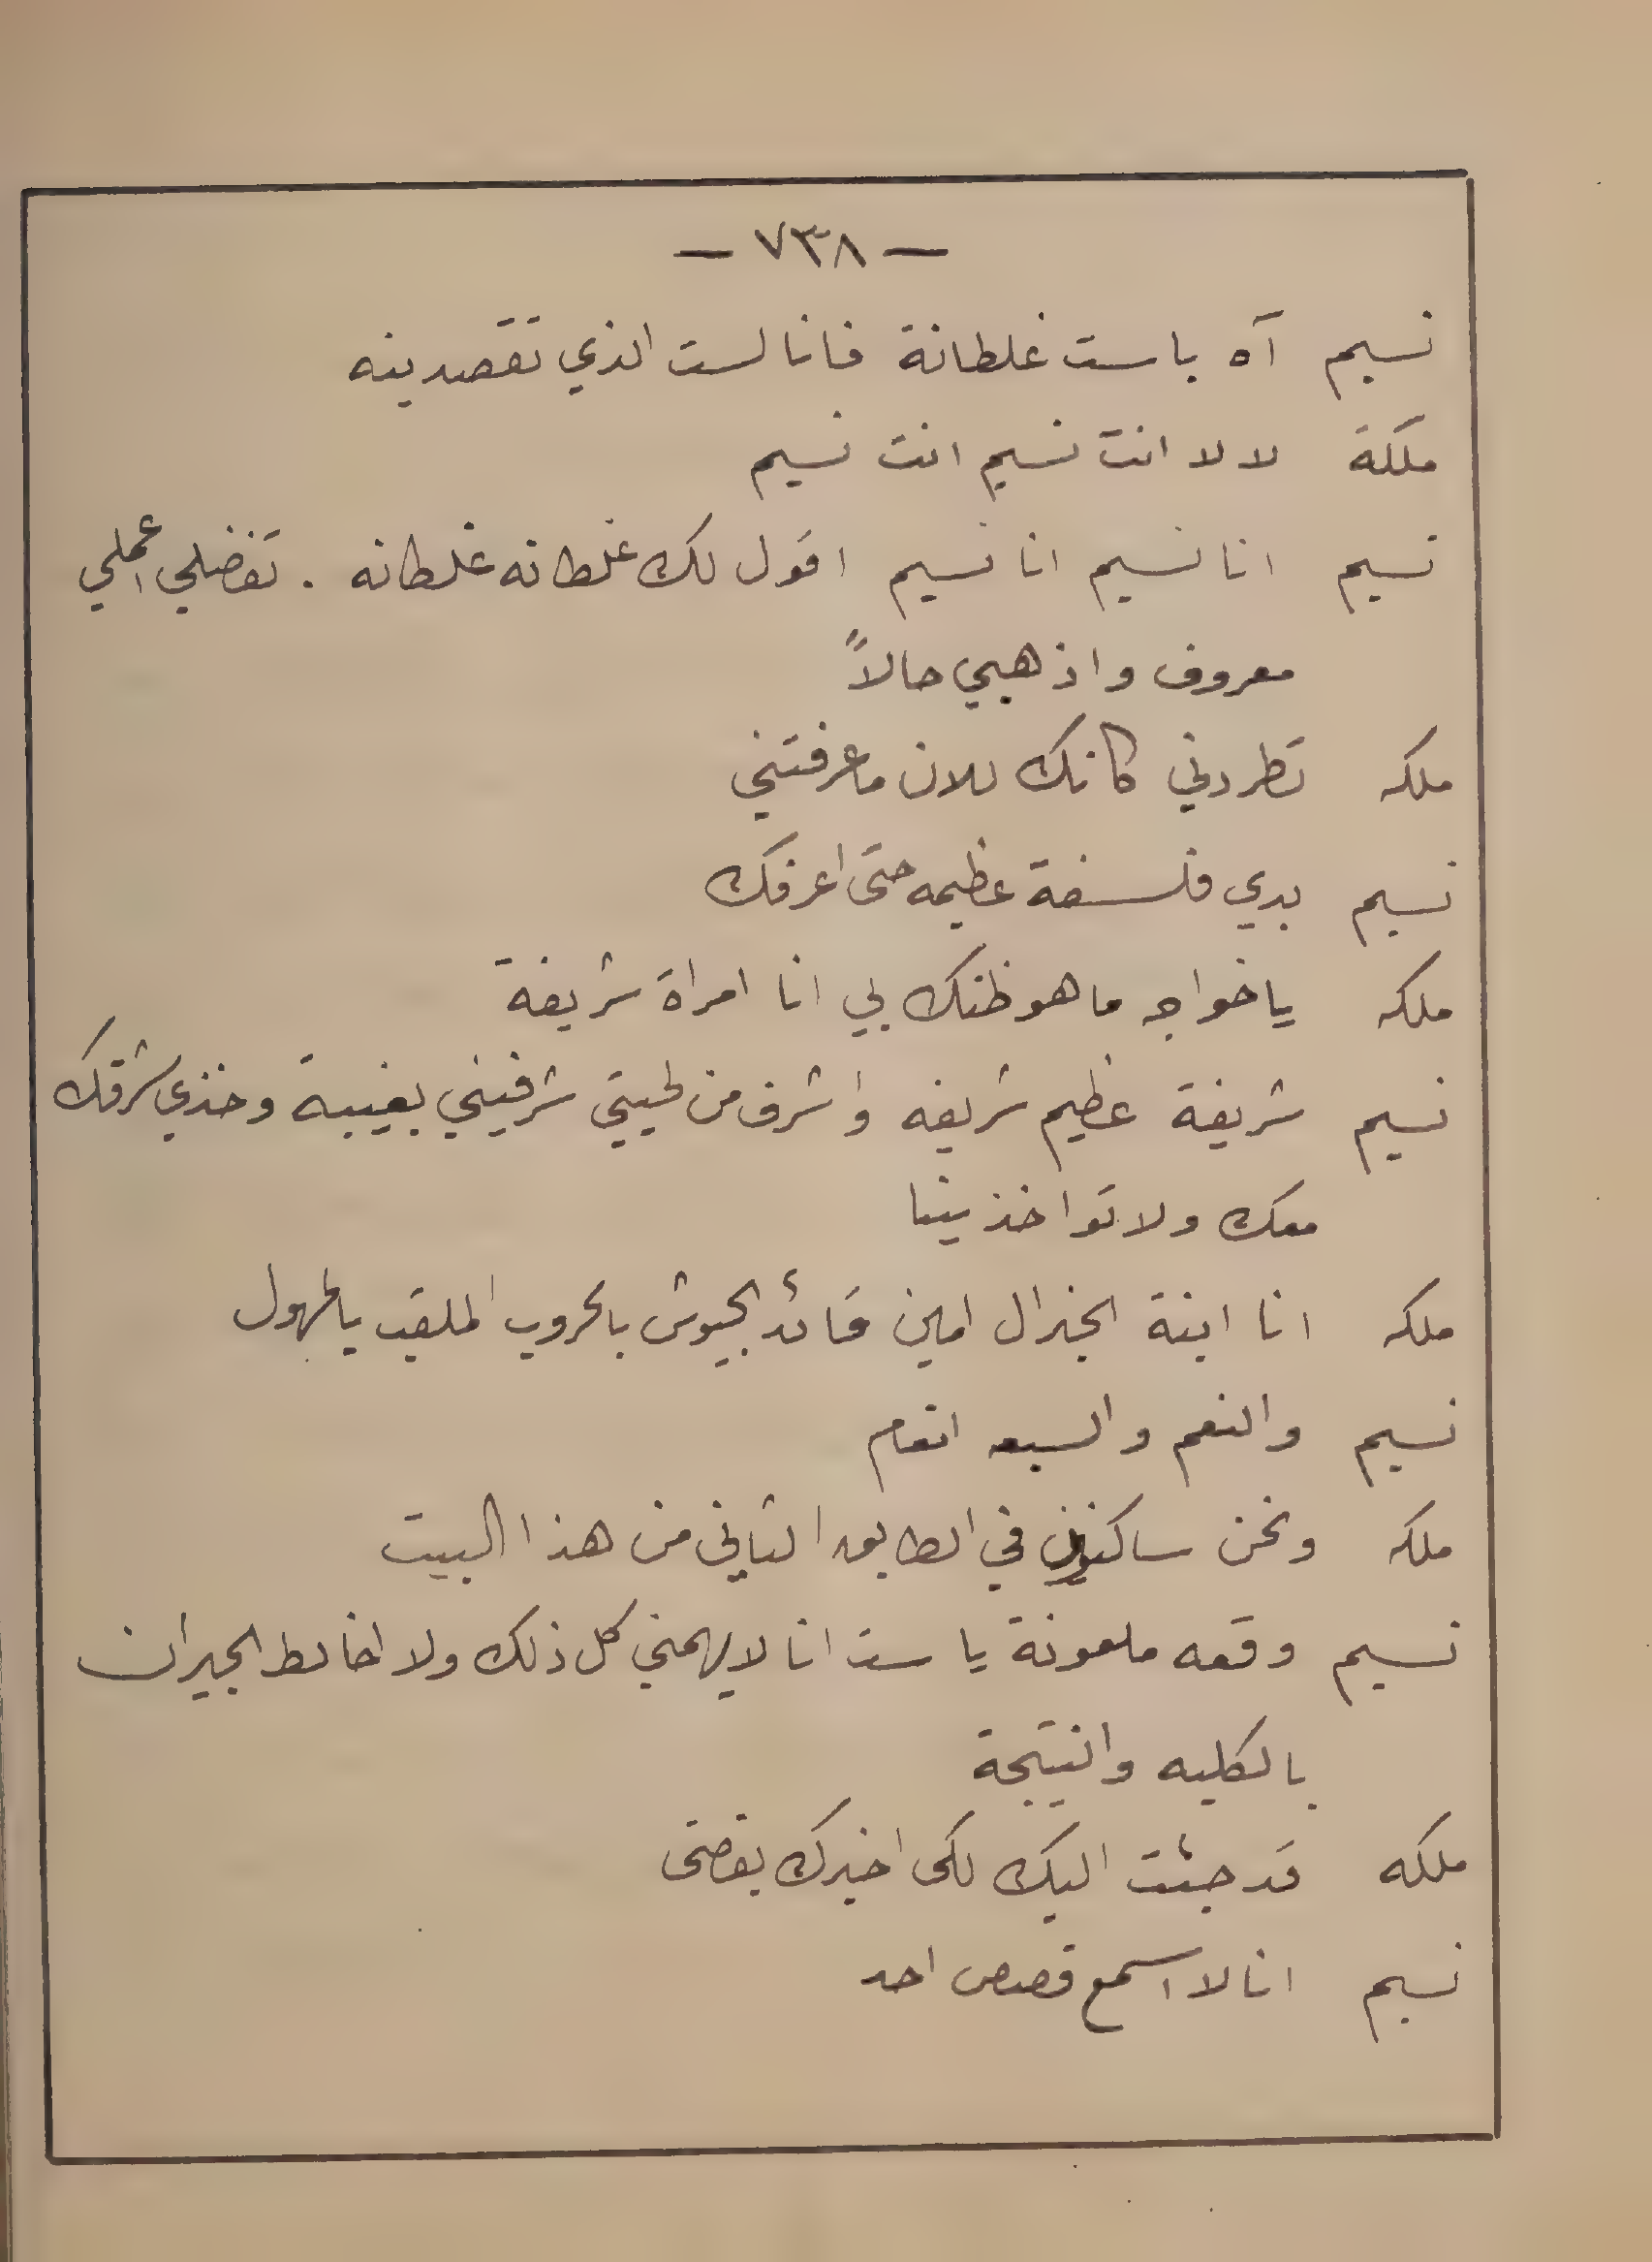 — ٧٣٨ —
نسيم آه ياست غلطانة فانا لست الذي تقصدينه
ملكة لا لا انت نسيم انت نسيم
نسيم انا نسيم انا نسيم اقول لك غلطانه غلطانه . تفضلي اعملي
معروف واذهبي حالاً
ملكه تطردني كانك للان ماعرفتني
نسيم بدي فلسفة عظيمه حتى اعرفك
ملكه ياخواجه ماهو ظنك بي انا امراة شريفة
نسيم شريفة عظيم شريفه واشرف من لحيتي شرفيني بغيبة وخذي شرفك
معك ولا تواخذينا
ملكه انا ابنة الجنرال امين قائد الجيوش بالحروب الملقب بالمهول
نسيم والنعم والسبعه انعام
ملكه ونحن ساكنين في الطابق الثاني من هذا البيت
نسيم وقعه ملعونة يا ست انا لايهمني كل ذلك ولا اخالط الجيران
بالكليه والنتيجة
ملكه قد جئت اليك لكى اخبرك بقصتى
نسيم انا لا اسمع قصص احد